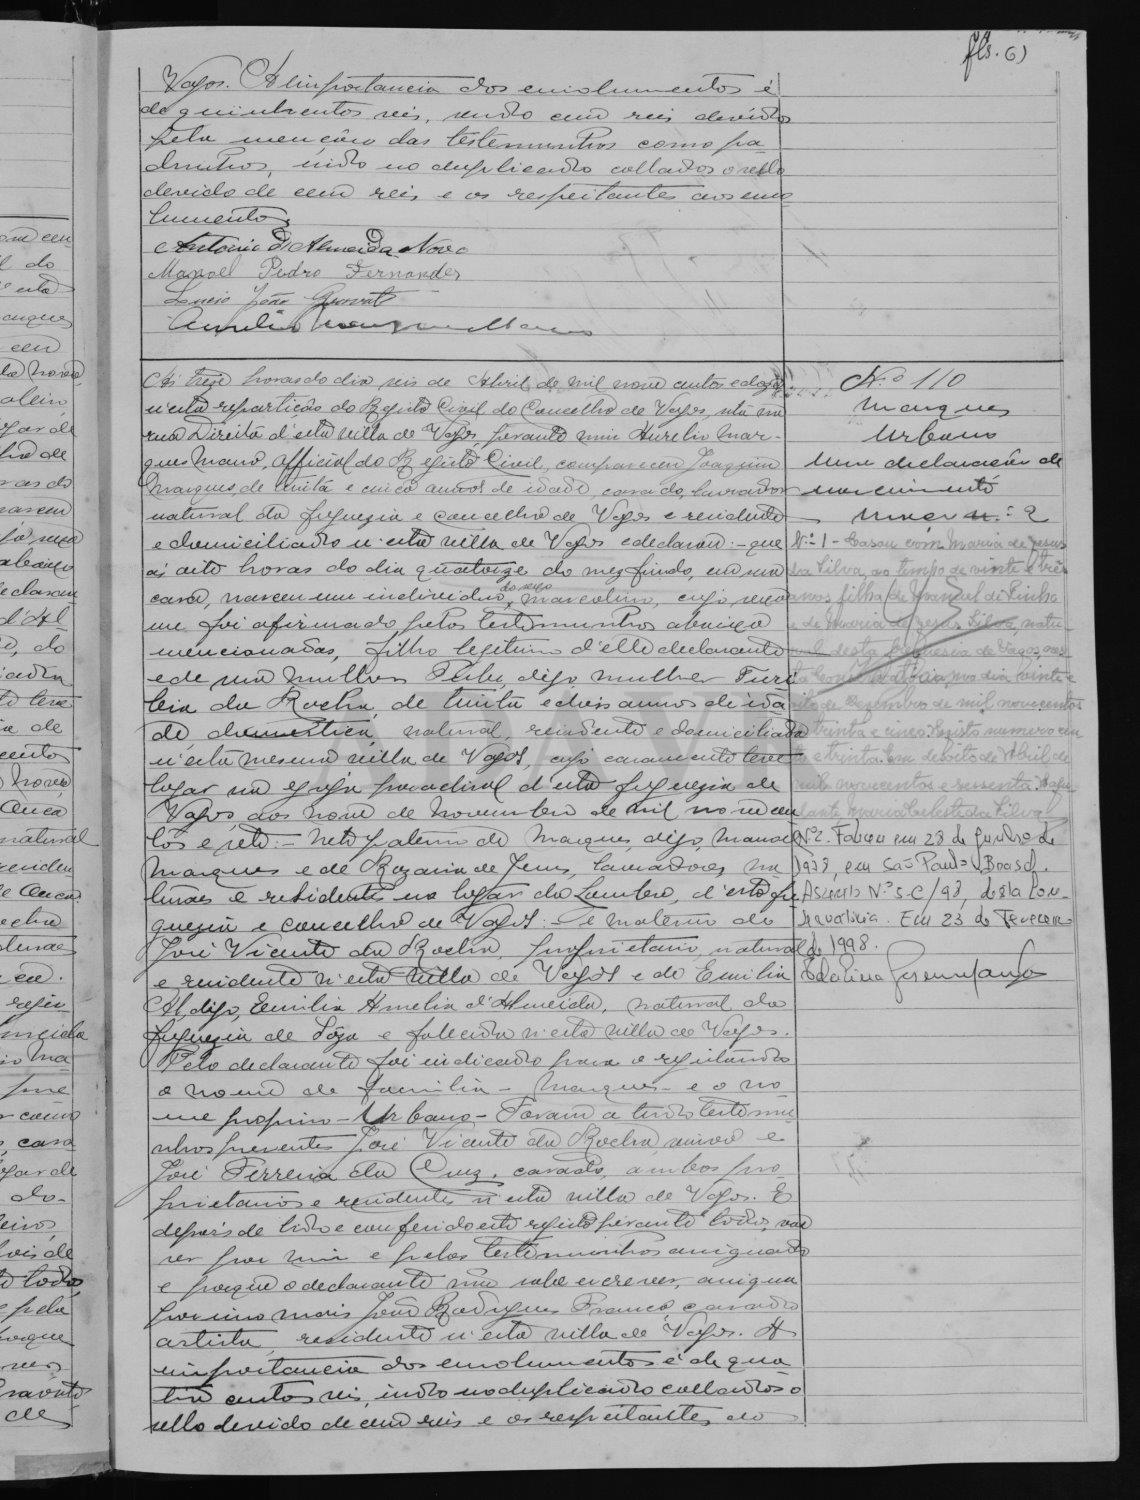 fls. 61
Vagos. A importancia dos emolumentos é
de quinhentos reis, sendo cem reis devidos
pela menção das testemunhas como pa-
drinhos, indo no duplicado collados o sello
devido de cem reis e os respeitantes aos emo
lumentos
Antonio d'Almeida Novo
Manoel Pedro Fernandes
Lucio João
Aurelio Marques Mano
Ás treze horas do dia seis de Abril de mil nove centos e doze
n'esta repartição do Registo Civil do Concelho de Vagos, sita na
rua Direita d'esta villa de Vagos, perante mim Aurelio Mar-
ques Mano, official do Registo Civil, compareceu Joaquim
Marques, de trinta e cinco annos de idade, casado, lavrador
natural da freguezia e concelho de Vagos e residente
e domiciliado n'esta villa de Vagos e declarou:- que
ás oito horas do dia quatorze do mez findo, em sua
casa, nasceu um individuo, do sexo masculino, cujo sexo
me foi afirmado pelas testemunhas abaixo
mencionadas, filho legitimo d'elle declarante
e de sua mulher digo mulher
da Rocha, de trinta e dois annos de ida
de, domestica, natural, residente e domiciliada
n'esta mesma villa de Vagos, cujo casamento teve
logar na egreja parochial d'esta freguezia de
Vagos, aos nove de novembro de mil nove cen
tos e sete:- neto paterno de Marques, digo, Manoel
Marques e de Rozaria de Jesus, lavradores, na
turaes e residentes no logar do Lombo, d'esta fre
guezia e concelho de Vagos:- e materno de
José Vicente da Rocha, proprietario, natural
e residente n'esta villa de Vagos e de Emilia
Al, digo, Emilia Amelia d'Almeida, natural da
freguezia de Soza e fallecida n'esta villa de Vagos.
Pelo declarante foi indicado para o registando
o nome de familia - Marques - e o no
me proprio - Urbano - Foram a tudo testemu
nhas presentes José Vicente da Rocha, viuvo e
José Ferreira da Cruz, casado, ambos pro
prietarios e residentes n'esta villa de Vagos. E
depois de lido e conferido este registo perante todos, vae
ser por mim e pelas testemunhas assignado
e porque o declarante não sabe escrever, assigna
por mais João Rodrigues Franco, casado
artista, residente n'esta villa de Vagos. A
importancia dos emolumentos é de qua
tro centos reis, indo no duplicado collados o
sello devido de cem reis e os respeitantes ao
N.º 110
Marques
Urbano
declaração de
nascimento
N.º 1 - Casou com Maria de Jesus
da Silva, ao tempo de vinte e três
anos filha de Manuel de Pinho
e de Maria de Jesus Silva, natu-
ral desta freguesia de Vagos,
no dia vinte e
oito de Dezembro de mil novecentos
e trinta e cinco. Registo numero cen
to e trinta. Em dezoito de Abril de
mil novecentos e sessenta.
Maria Celeste da Silva
Nº2. Faleceu em 28 de Junho de
em São Paulo, Brasil.
Assento Nº 5-C/98, desta Con-
servatória. Em 23 de Fevereiro
de 1998.